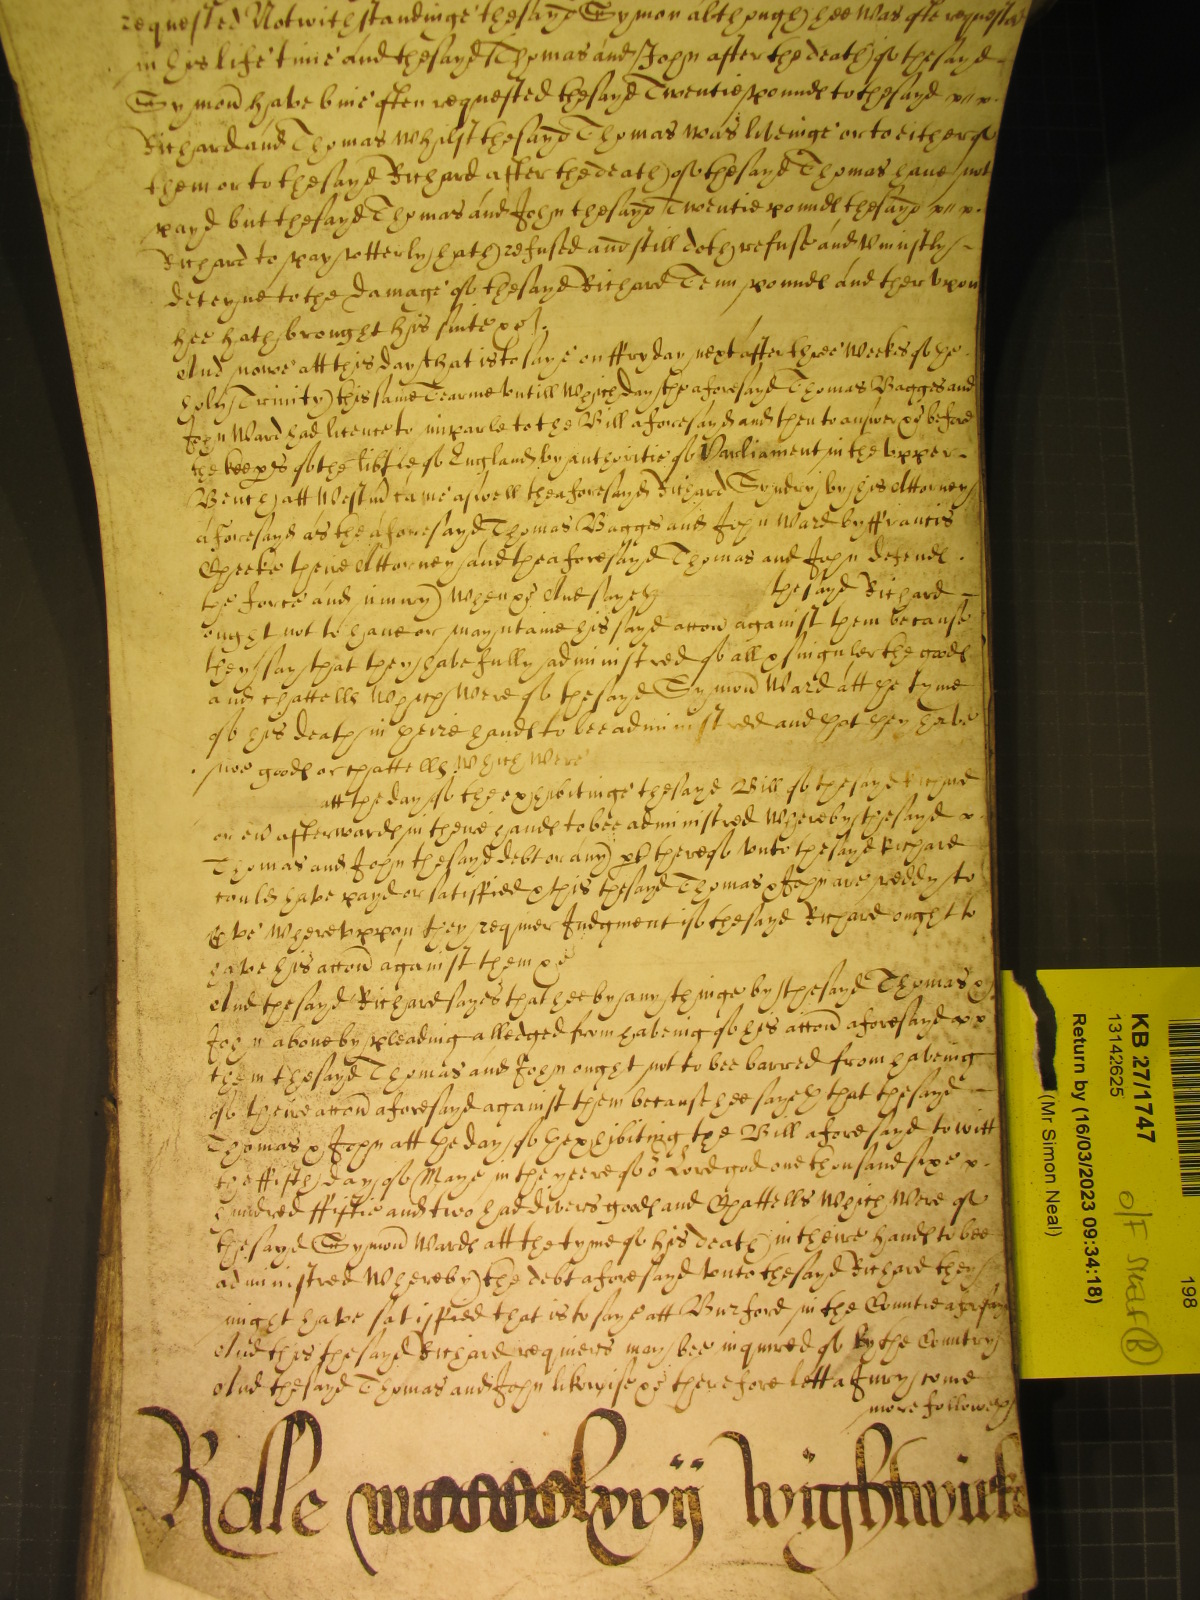 requested Notwithstandinge the sayd Symon although hee was ofte requested
in his life time and the sayd Thomas and John after the death of the sayd
Symon have bine often requested the sayd Twentie pounds to the sayd
Richard and Thomas whilst the sayd Thomas was liveinge or to either of
them or to the sayd Richard after the death of the sayd Thomas have not
payd but the sayd Thomas and John the sayd Twentie pounds the sayd
Richard to pay utterly hath refused and still doth refuse and uniustly
deteyne to the damage of the sayd Richard Tenn pounds and ther upon
hee hath brought his suite &c.
And nowe att this day that is to saye on ffryday next after three weekes of the
holy Trinity this same Tearme untill which day the aforesayd Thomas Bagges and
John Ward had licence to imparle to the Bill aforesayd and then to answer &c before
the keepers of the libtie of England by authoritie of Parliament in the upper
Bench att Westm came aswell the aforesayd Richard Syndry by his Attorney
aforesayd as the aforesayd Thomas Bagges and John Ward by ffrancis
Cheeke theire Attorney and the aforesayd Thomas and John defend
the force and iniury when &c And sayeth the sayd Richard
ought not to have or mayntaine his sayd accon against them because
they say that they have fully administred of all & singuler the goods
and chattells which were of the sayd Symon Ward att the tyme
of his death in theire hands to bee administred and that they have
noe goods or chattells which were
att the day of the exhibitinge the sayd Bill of the sayd Richard
or ev afterwards in theire hands to bee administred whereby the sayd
Thomas and John the sayd debt or any pt thereof unto the sayd Richard
could have payd or satisfied & this the sayd Thomas & John are reddy to
&c whereuppon they requier Judgment if the sayd Richard ought to
have his accon against them &c
And the sayd Richard sayes that hee by any thinge by the sayd Thomas &
John above by pleading alledged from haveing of his accon aforesayd
them the sayd Thomas and John ought not to bee barred from haveing
of theire accon aforesayd against them because hee sayeth that the sayd
Thomas & John att the day of the exhibiting the Bill aforesayd to witt
the ffifth day of Maye in the yeere of or Lord god one thousand sixe
hundred ffiftie and two had divers goods and Chattells which were of
the sayd Symon Ward att the tyme of his death in theire hands to bee
administred whereby the debt aforesayd unto the sayd Richard they
might have satisfied that is to saye att Burford in the Countie aforesayd
And this the sayd Richard requiers may bee inquired of by the Country
And the sayd Thomas and John likewise &c therefore lett a Jury come
more followeth
Rolle mccccclxvij Wightwicke
198
KB 27/1747
13142625
Return by (16/03/2023 09:34:18)
(Mr Simon Neal)